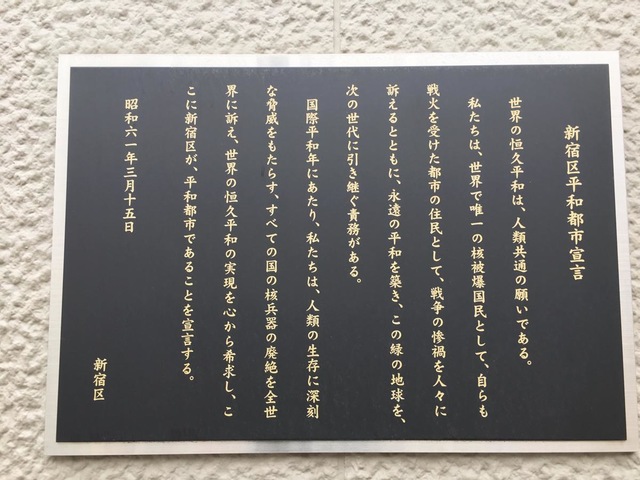 新宿区平和都市宣言
世界の恒久平和は、人類共通の願いである。
私たちは、世界で唯一の核被爆国民として、自らも
戦火を受けた都市の住民として、戦争の惨禍を人々に
訴えるとともに、永遠の平和を築き、この緑の地球を、
次の世代に引き継ぐ責務がある。
国際平和年にあたり、私たちは、人類の生存に深刻
な脅威をもたらす、すべての国の核兵器の廃絶を全世
界に訴え、世界の恒久平和の実現を心から希求し、こ
こに新宿区が、平和都市であることを宣言する。
昭和六一年三月十五日
新宿区